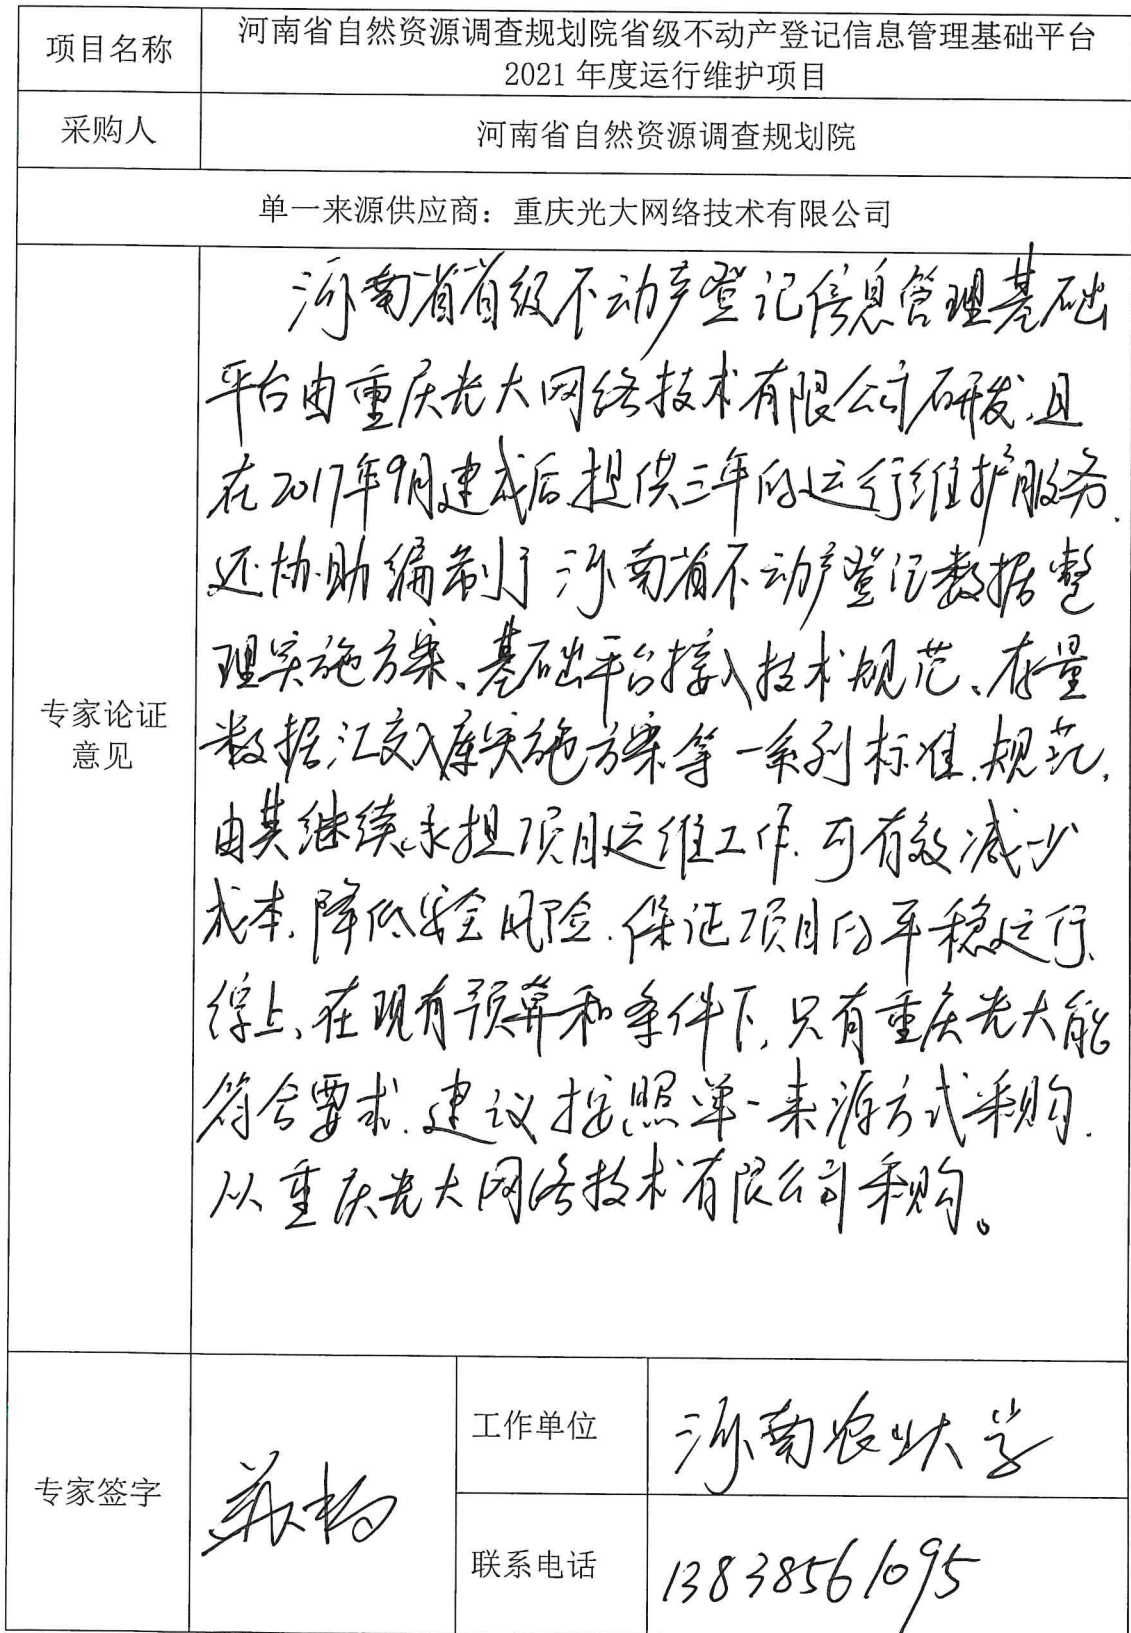 项目名称
河南省自然资源调查规划院省级不动产登记信息管理基础平台
2021 年度运行维护项目
采购人
河南省自然资源调查规划院
单一来源供应商：重庆光大网络技术有限公司
专家论证
意见
河南省省级不动产登记信息管理基础
平台由重庆光大网络技术有限公司研发，且
在2017年9月建成后，提供三年的运行维护服务，
还协助编制了河南省不动产登记数据整
理实施方案、基础平台接入技术规范、存量
数据汇交入库实施方案等一系列标准、规范，
由其继续承担项目运维工作，可有效减少
成本，降低安全风险，保证项目的平稳运行，
综上，在现有预算和条件下，只有重庆光大能
符合要求，建议按照单一来源方式采购，
从重庆光大网络技术有限公司采购。
专家签字
工作单位
河南农业大学
联系电话
13838561095